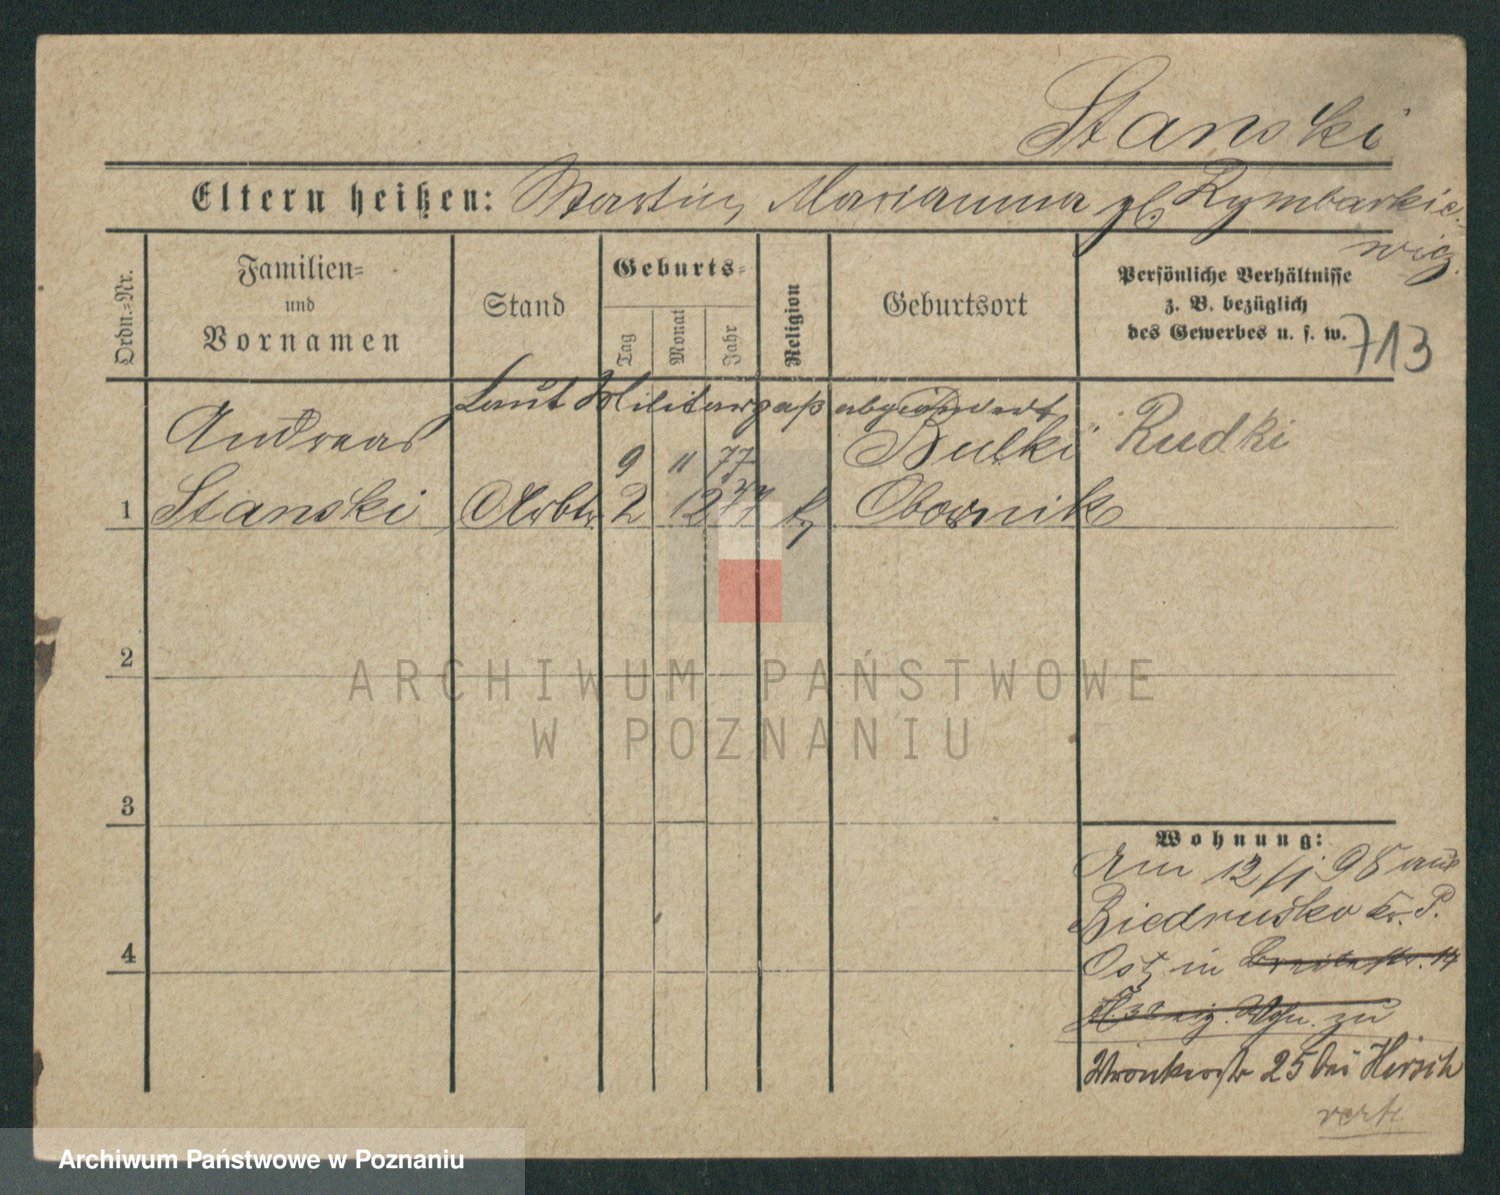 Stanski
Eltern heißen: Martin, Marianna gb Rymbarkie-
wicz.
Ordn.=Nr.
Familien=
und
Vornamen
Stand
Geburts=
Tag
Monat
Jahr
Religion
Geburtsort
Persönliche Verhältnisse
z. B. bezüglich
des Gewerbes u. s. w.
713
Laut Militärpaß abgeändert
Andreas 9 11 77 Rudki
1 Stanski Arbtr 2 12 77 k Obornik
2
3
4
Wohnung:
Am 12/1 98 aus
Biedrusko Kr. P.
Ost, in Breitestr. 14
zu
Wronkerstr 25 bei Hirsch
verte
ARCHIWUM PAŃSTWOWE
W POZNANIU
Archiwum Państwowe w Poznaniu